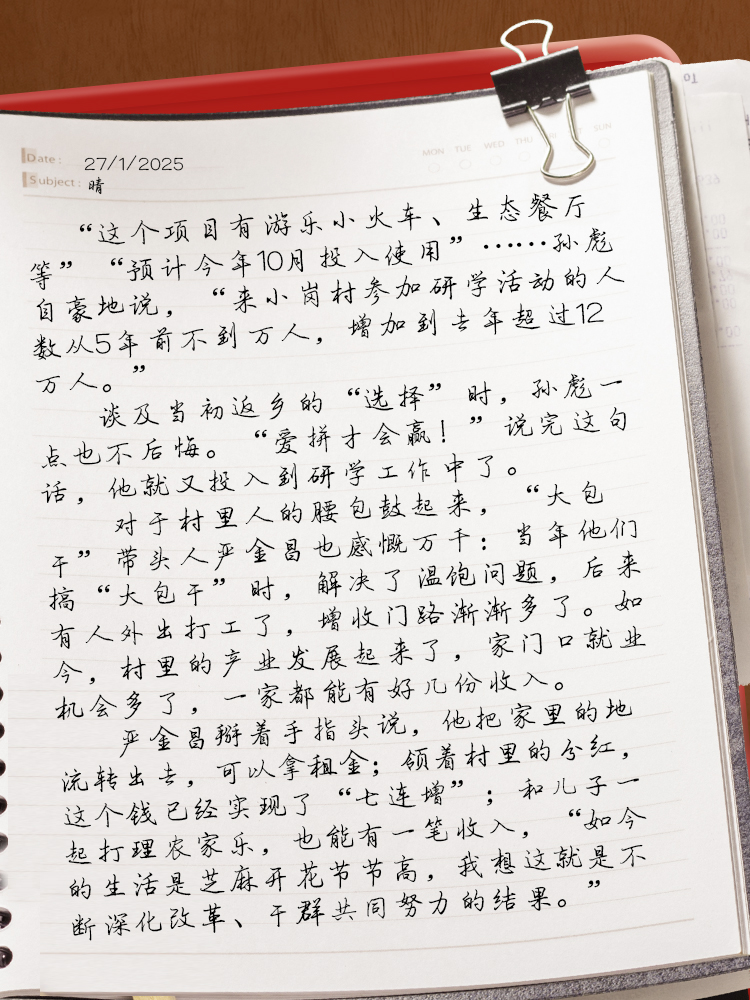 Date: 27/1/2025
MON TUE WED THU SUN
Subject: 晴
“这个项目有游乐小火车、生态餐厅
等”“预计今年10月投入使用”……孙彪
自豪地说，“来小岗村参加研学活动的人
数从5年前不到万人，增加到去年超过12
万人。”
谈及当初返乡的“选择”时，孙彪一
点也不后悔。“爱拼才会赢！”说完这句
话，他就又投入到研学工作中了。
对于村里人的腰包鼓起来，“大包
干”带头人严金昌也感慨万千：当年他们
搞“大包干”时，解决了温饱问题，后来
有人外出打工了，增收门路渐渐多了。如
今，村里的产业发展起来了，家门口就业
机会多了，一家都能有好几份收入。
严金昌掰着手指头说，他把家里的地
流转出去，可以拿租金；领着村里的分红，
这个钱已经实现了“七连增”；和儿子一
起打理农家乐，也能有一笔收入，“如今
的生活是芝麻开花节节高，我想这就是不
断深化改革、干群共同努力的结果。”